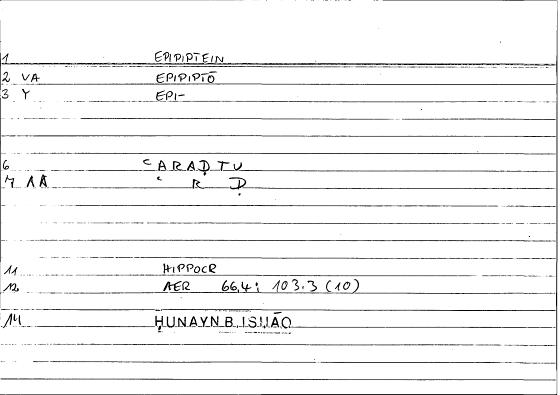 1 EPIPIPTEIN
2 VA EPIPIPTŌ
3 Y EPI-
6 ʿARAḌTU
7 AA ʿ R Ḍ
11 HIPPOCR
12 AER 66,4; 103.3 (10)
14 ḤUNAYN B. ISḤĀQ